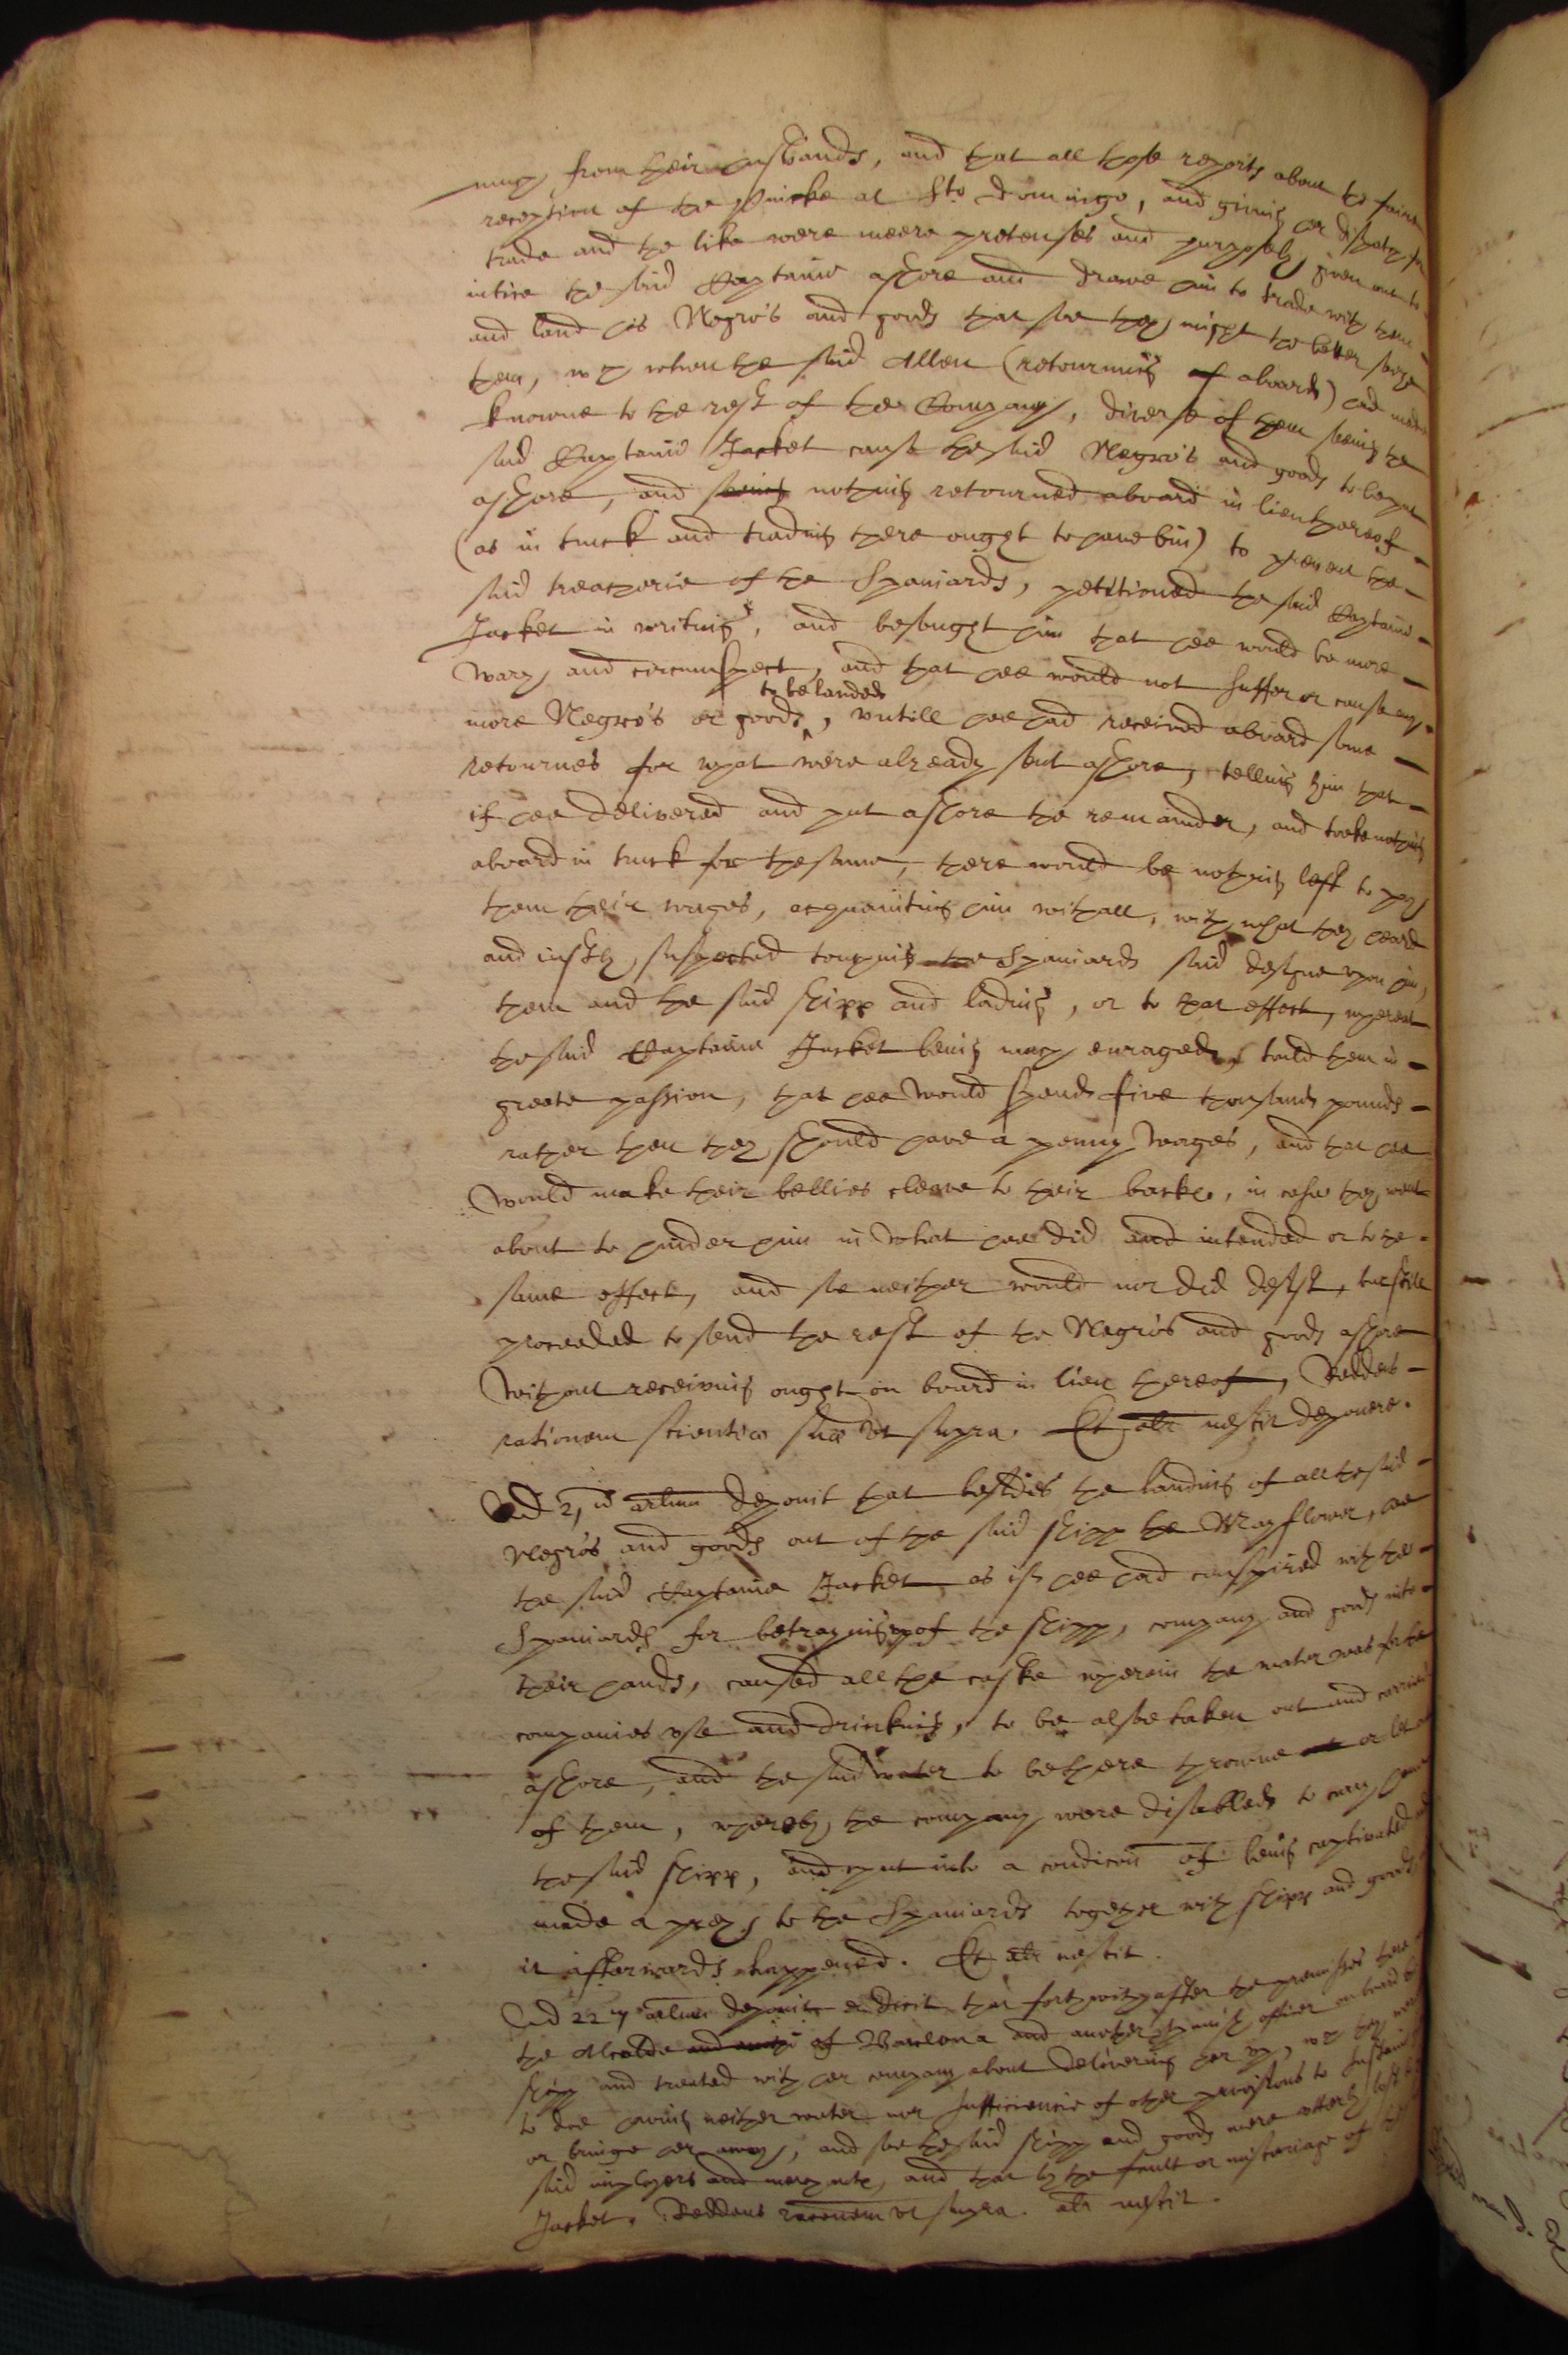 much from their husbands, and that all those reports about the faire
reception of the Pincke at Sto Domingo, and giving her dispatch for
trade and the like were meere pretenses and purposely given out to
intice the said Captaine ashore and drawe him to trade with them
and land his Negro's and goods that soe they might the better seize
them, wch when the said Allen (retourning aboard) had made
knowne to the rest of the Company, diverse of them seeing the
said Captaine Jacket cause the said Negro's and goods to be put
ashore, and seeing nothing retourned aboard in lieu thereof
(as in truck and trading there ought to have bin) to prevent the
said treacherie of the Spaniards, petitioned the said Captaine
Jacket in writing, and besought him that hee would be more
wary and circumspect, and that hee would not suffer or cause any
more Negro's or goods to be landed, untill hee had received aboard some
retournes for what were already sent ashore, telling him that
if hee delivered and put ashore the remainder, and tooke nothing
aboard in truck for the same, there would be nothing left to pay
them their wages, acquainting him withall, with what they heard
and justly suspected touching the Spaniards said designe upon him,
them and the said shipp and lading, or to that effect, whereat
the said Captaine Jacket being much enraged, tould them in
greate passion, that hee would spend five thousand pounds
rather then they should have a penny wages, and that hee
would make their bellies cleave to their backs, in case they went
about to hinder him in what hee did and intended or to the
same effect, and soe neither would nor did desist, but still
proceeded to send the rest of the Negro's and goods ashore
without receiving ought on board in lieu thereof, Reddens
rationem scientiæ suæ ut supra. Et alr nescit deponere.
Ad 21 um arlum deponit that besides the landing of all the said
Negro's and goods out of the said shipp the Mayflower, hee
the said Captaine Jacket, as if hee had conspired with the
Spaniards for betraying of the shipp, company and goods into
their hands, caused all the caske wherein the water was for the
companies use and drinking, to be alsoe taken out and carried
ashore, and the said water to be there throwne or let out
of them, whereby the company were disabled to carry home
the said shipp, and put into a condicon of being captivated and
made a prey to the Spaniards together with shipp and goods
it afterwards happened. Et alr nescit.
Ad 22 arlum deponit et dicit that forthwith after the premisses
the Alcalde of Barcelona and another Spanish officer on board the
shipp and treated with her company about delivering her up, wch they were
to doe having neither water nor sufficiencie of other provisions to sustaine
or bringe her away, and soe the said shipp and goods were utterly lost to
said imployers and merchants, and that by the fault or miscariage of
Jacket. Reddens raconem ut supra. alr nescit.